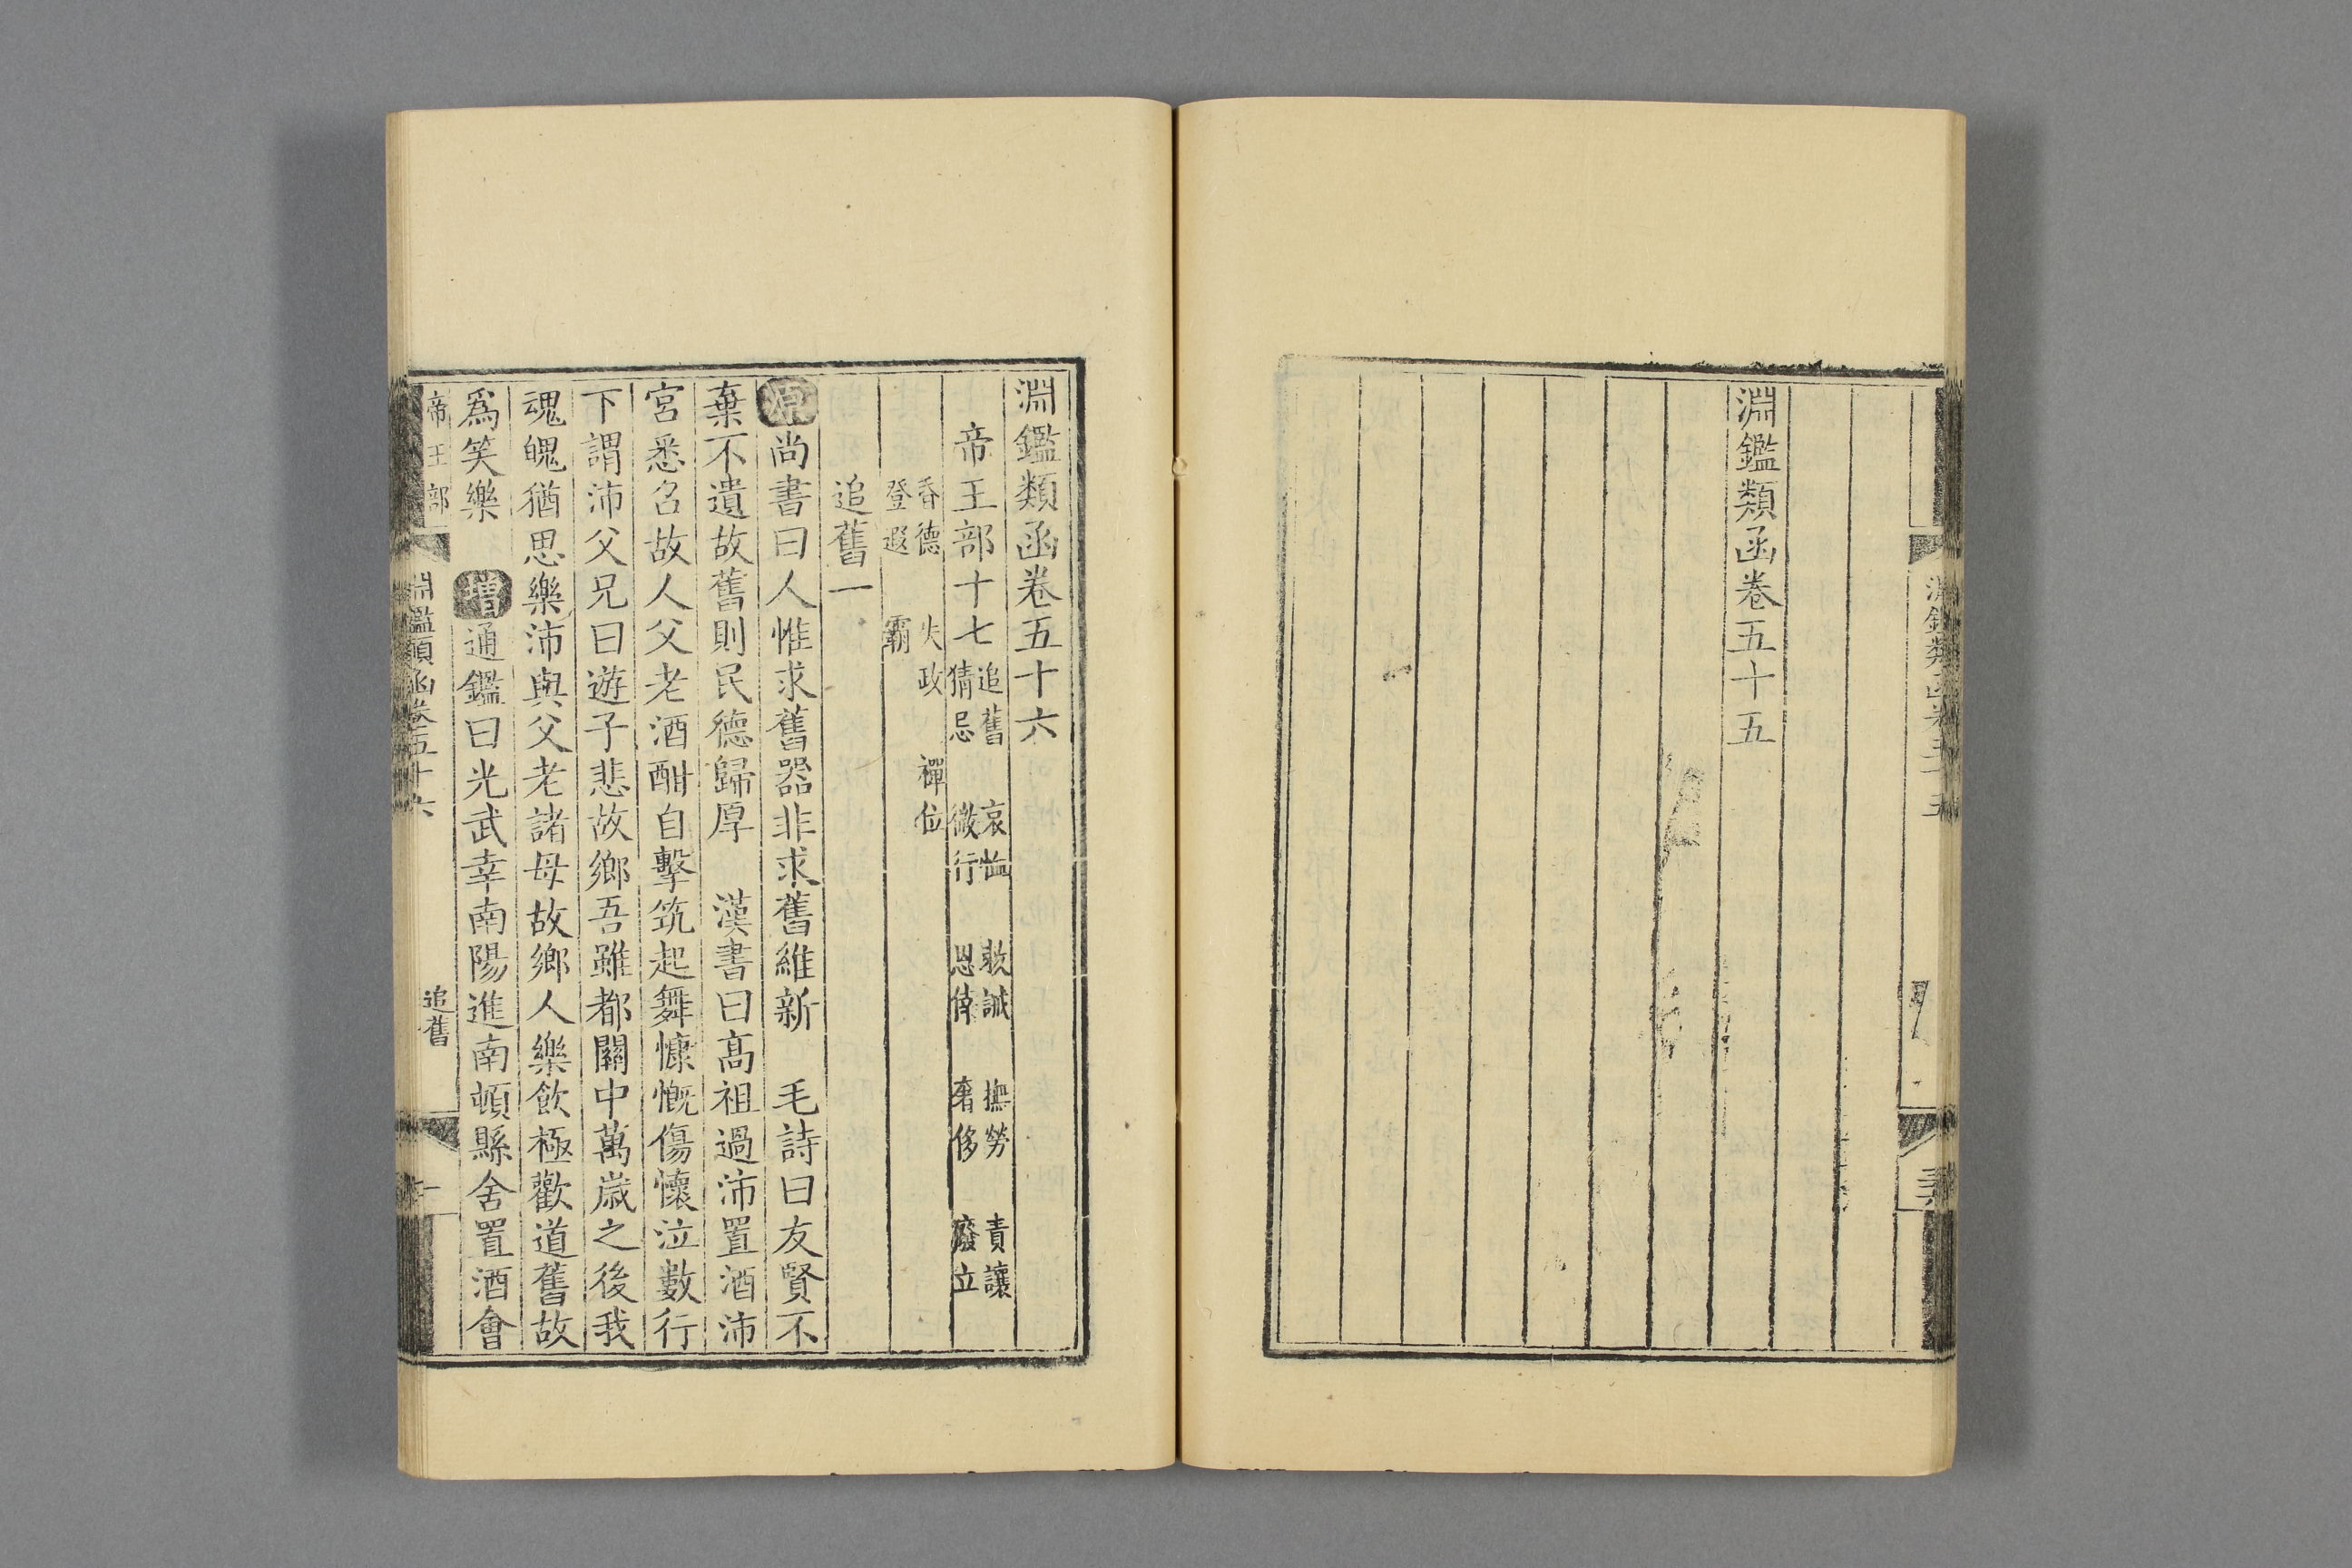 淵鑑類函卷五十五
淵鑑類函卷五十五
淵鑑類函卷五十六
帝王部十七 追舊 哀恤 敕誡 撫勞 責讓
猜忌 微行 恩倖 奢侈 廢立
昏德 失政 禪位
登遐 霸
追舊一
原尚書曰人惟求舊器非求舊維新 毛詩曰友賢不
棄不遺故舊則民德歸厚 漢書曰高祖過沛置酒沛
宮悉召故人父老酒酣自擊筑起舞慷慨傷懷泣數行
下謂沛父兄曰遊子悲故鄉吾雖都關中萬歲之後我
魂魄猶思樂沛與父老諸母故鄉人樂飲極歡道舊故
爲笑樂 增通鑑曰光武幸南陽進南頓縣舍置酒會
帝王部 淵鑑類函卷五十六 追舊 一